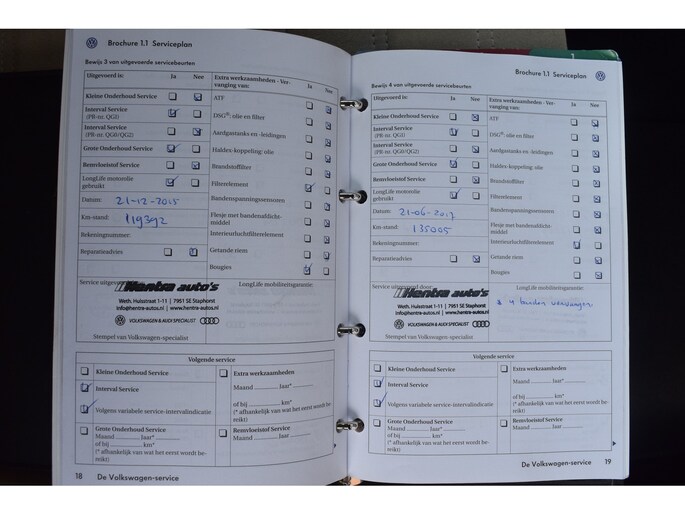 Brochure 1.1 Serviceplan
Bewijs 3 van uitgevoerde servicebeurten
Uitgevoerd in: Ja Nee
Kleine Onderhoud Service
Interval Service
(PR-nr. QG1)
Interval Service
(PR-nr. QG0/QG2)
Grote Onderhoud Service
Remvloeistof Service
LongLife motorolie
gebruikt
Datum: 21-12-2015
Km-stand: 119392
Rekeningnummer:
Reparatieadvies
Extra werkzaamheden - Ver-
vanging van: Ja Nee
ATF
DSG®: olie en filter
Aardgastanks en -leidingen
Haldex-koppeling: olie
Brandstoffilter
Filterelement
Bandenspanningssensoren
Flesje met bandenafdicht-
middel
Interieurluchtfilterelement
Getande riem
Bougies
Service uitgevoerd door:
Hentra auto's
Weth. Hulsstraat 1-11 | 7951 SE Staphorst
info@hentra-autos.nl | www.hentra-autos.nl
VOLKSWAGEN & AUDI SPECIALIST
Stempel van Volkswagen-specialist
LongLife mobiliteitsgarantie:
Volgende service
Kleine Onderhoud Service
Interval Service
Volgens variabele service-intervalindicatie
Grote Onderhoud Service
Maand ........ Jaar* ........
of bij ........ km*
(* afhankelijk van wat het eerst wordt be-
reikt)
Extra werkzaamheden
Maand ........ Jaar* ........
of bij ........ km*
(* afhankelijk van wat het eerst wordt bereikt)
Remvloeistof Service
Maand ........ Jaar ........
18 De Volkswagen-service
Brochure 1.1 Serviceplan
Bewijs 4 van uitgevoerde servicebeurten
Uitgevoerd in: Ja Nee
Kleine Onderhoud Service
Interval Service
(PR-nr. QG1)
Interval Service
(PR-nr. QG0/QG2)
Grote Onderhoud Service
Remvloeistof Service
LongLife motorolie
gebruikt
Datum: 21-06-2017
Km-stand: 135005
Rekeningnummer:
Reparatieadvies
Extra werkzaamheden - Ver-
vanging van: Ja Nee
ATF
DSG®: olie en filter
Aardgastanks en -leidingen
Haldex-koppeling: olie
Brandstoffilter
Filterelement
Bandenspanningssensoren
Flesje met bandenafdicht-
middel
Interieurluchtfilterelement
Getande riem
Bougies
Service uitgevoerd door:
Hentra auto's
Weth. Hulsstraat 1-11 | 7951 SE Staphorst
info@hentra-autos.nl | www.hentra-autos.nl
VOLKSWAGEN & AUDI SPECIALIST
Stempel van Volkswagen-specialist
LongLife mobiliteitsgarantie:
4 banden vervangen
Volgende service
Kleine Onderhoud Service
Interval Service
Volgens variabele service-intervalindicatie
Grote Onderhoud Service
Maand ........ Jaar* ........
of bij ........ km*
(* afhankelijk van wat het eerst wordt be-
reikt)
Extra werkzaamheden
Maand ........ Jaar* ........
of bij ........ km*
(* afhankelijk van wat het eerst wordt bereikt)
Remvloeistof Service
Maand ........ Jaar ........
De Volkswagen-service 19